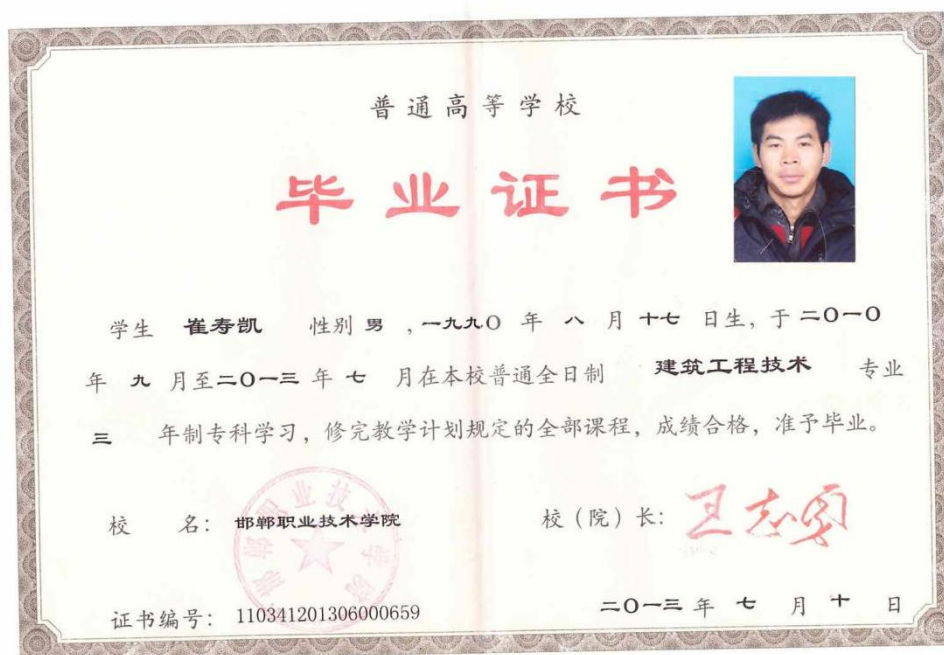 普通高等学校
毕业证书
学生 崔寿凯 性别 男 ，一九九〇 年 八 月 十七 日生，于 二〇一〇
年 九 月至二〇一三 年 七 月在本校普通全日制 建筑工程技术 专业
三 年制专科学习，修完教学计划规定的全部课程，成绩合格，准予毕业。
校 名： 邯郸职业技术学院 校（院）长： 王志勇
邯郸职业技术学院
证书编号： 110341201306000659 二〇一三 年 七 月 十 日